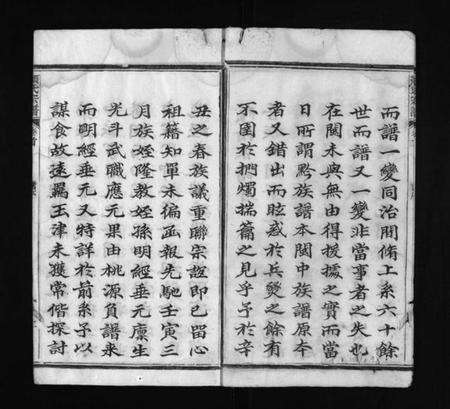 而譜一變同治間脩上系六十餘
世而譜又一變非當事者之失也
在閩未與無由得援據之實而當
日所謂黔族譜本閩中族譜原本
者又錯出而眩惑於兵燹之餘有
不囿於捫燭揣籥之見乎予於辛
丑之春族議重聯宗誼即已留心
祖籍知單未徧函報先馳壬寅三
月族姪隆教姪孫明經垂元廪生
光斗武職應元果由桃源負譜來
而明經垂元又特詳於前系予以
謀食故遠羈玉津未獲常偕探討